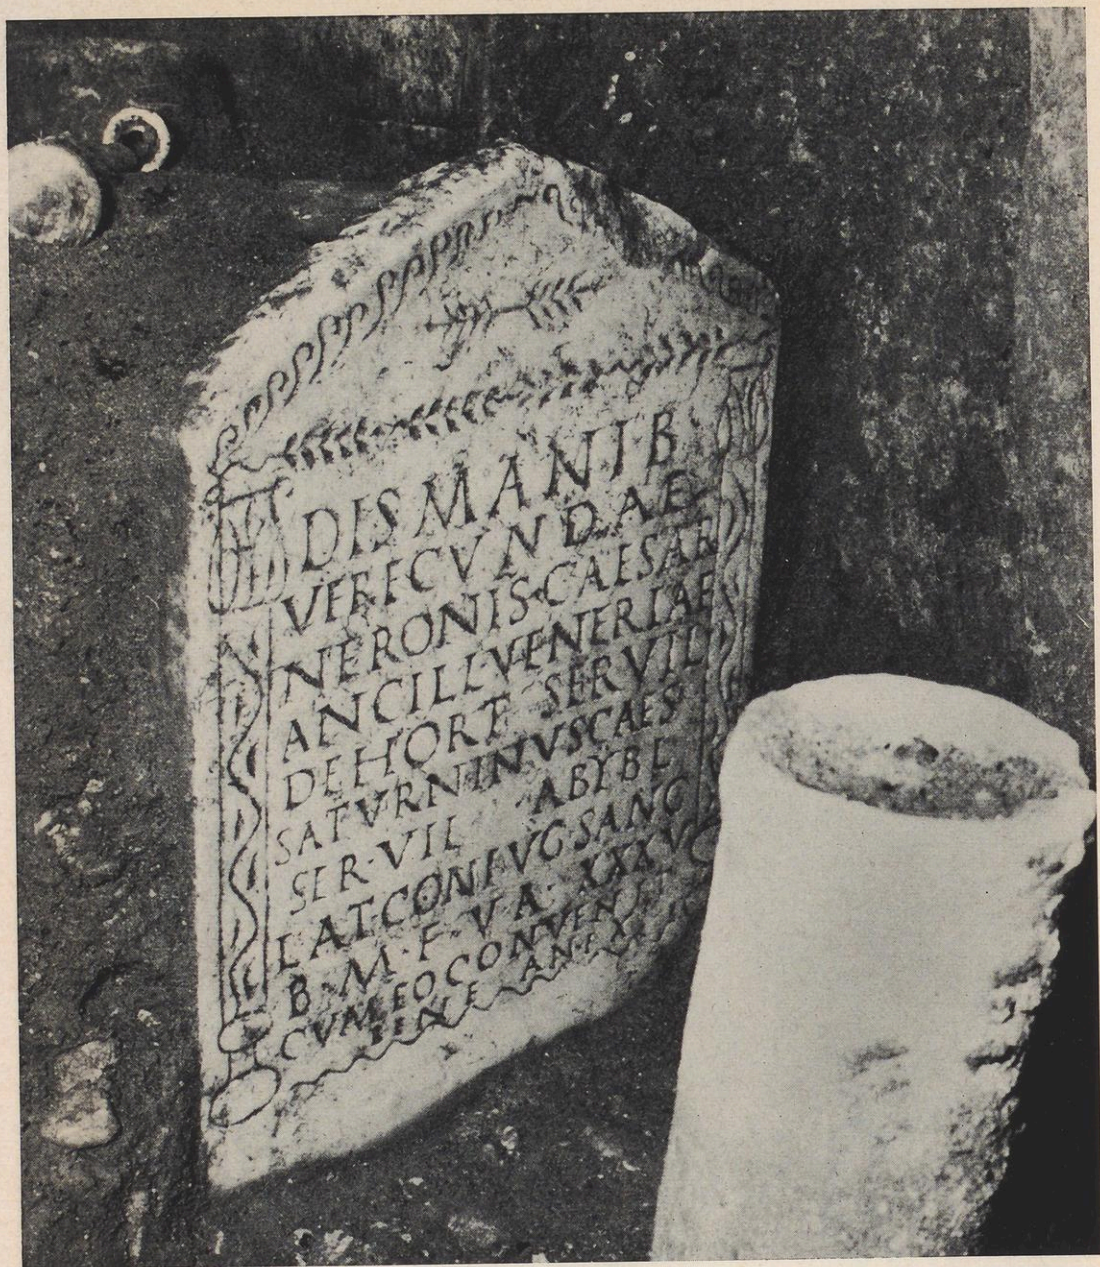 DIS MANIB
VERECVNDAE
NERONIS·CAESAR
ANCILL VENERIAE
DE HORT SERVIL
SATVRNINVS CAES
SER·VIL ABYBL
LAT·CONIVG SANC
B·M·F·VA·XXXV
CVM EO CONVENIT
BENE AN